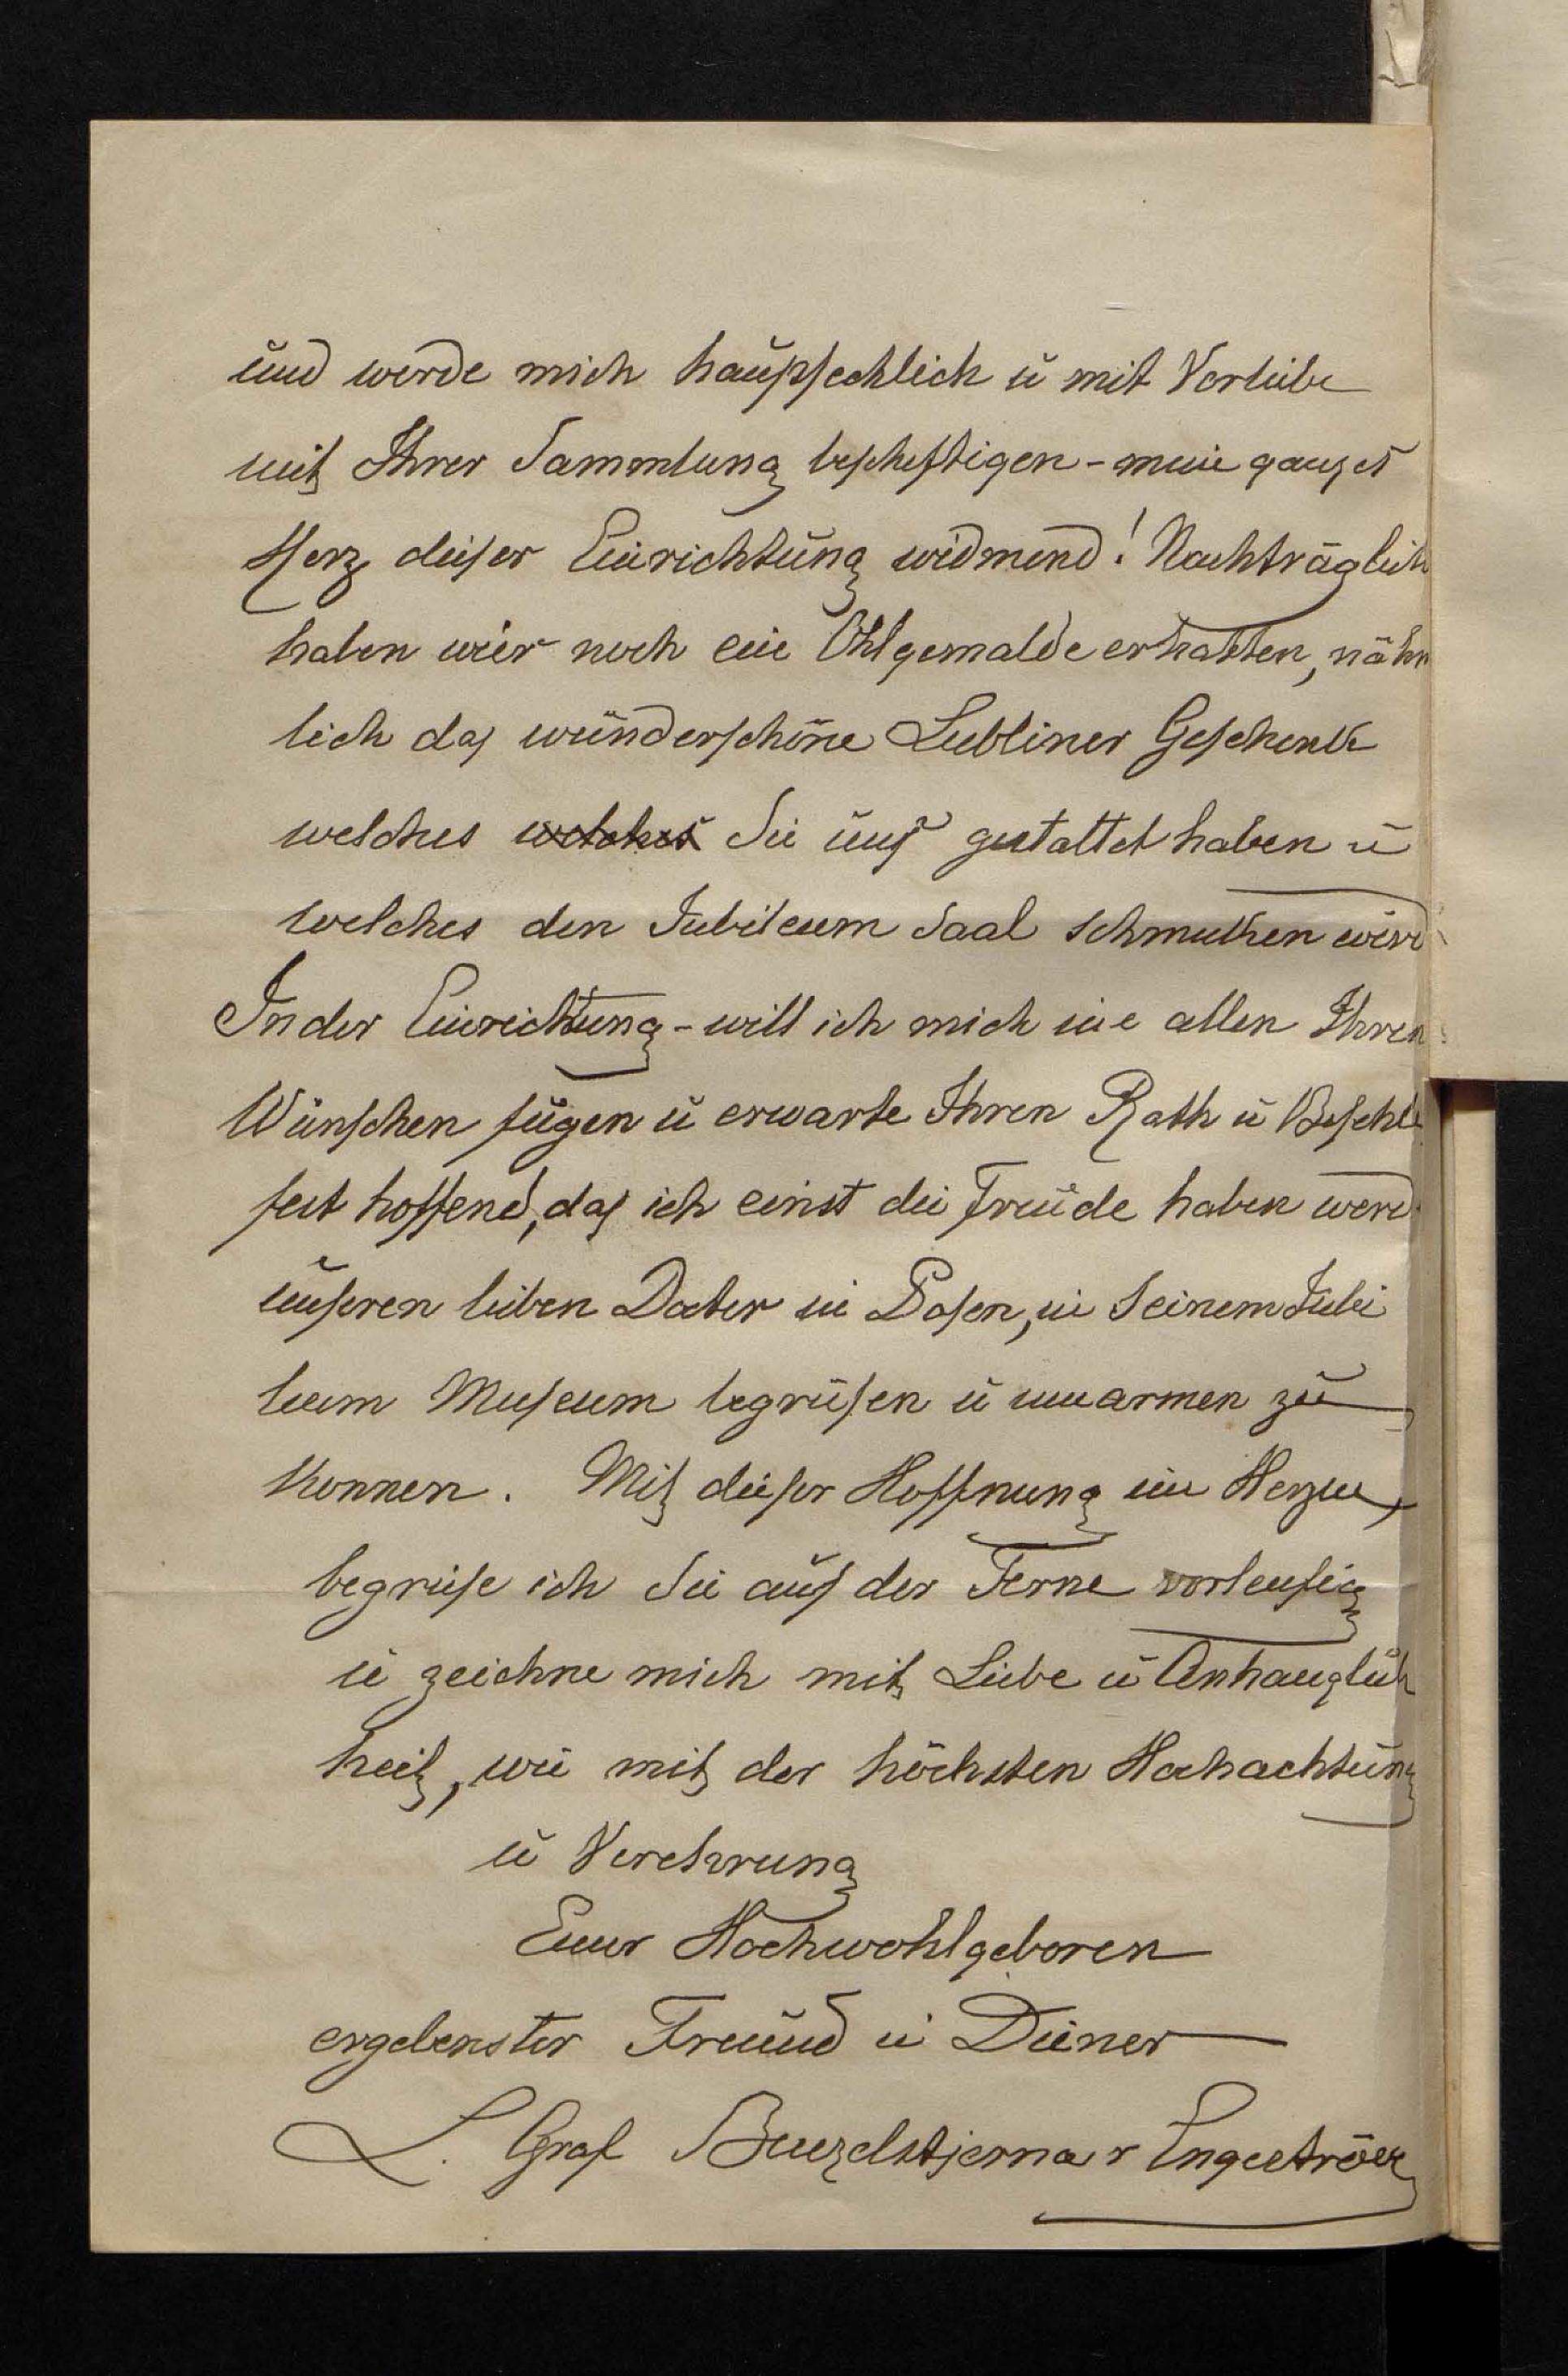 und werde mich haupsechlich u mit Vorliebe
mit Ihrer Sammlung bescheftigen - mein ganzes
Herz dieser Einrichtung widmend! Nachträglich
haben wier noch ein Öhlgemalde erhalten, nähm
lich das wünderschöne Lubliner Geschenk
welches welches Sie uns gestattet haben u
welches den Jubileum Saal schmuken wird
In der Einrichtung - will ich mich in allen Ihren
Wünschen fügen u erwarte Ihren Rath u Befehle
fest hoffend, das ich einst die Freude haben werde
unseren lieben Doctor in Posen, in Seinem Jubi
leum Museum begrüsen u umarmen zu
konnen. Mit dieser Hoffnung im Herzen,
begrüse ich Sie aus der Ferne vorleufig
u zeichne mich mit Liebe u Anhanglich
keit, wie mit der höchsten Hochachtung
u Verehrung
Euer Hochwohlgeboren
ergebenster Freund u Diener
L. Graf Benzelstjerna v Engeström